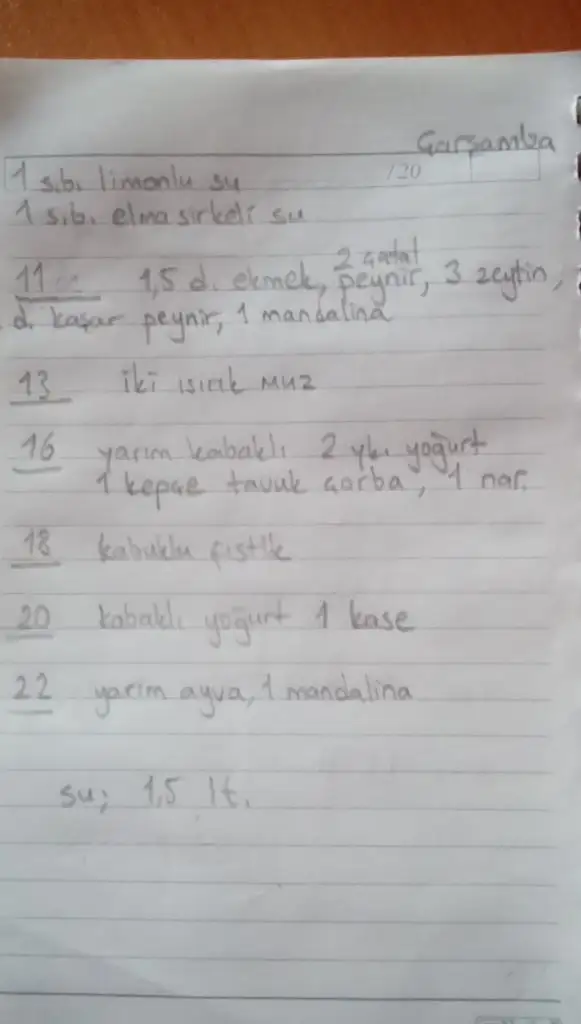 Çarşamba
/20
1 s.b. limonlu su
1 s.b. elma sirkeli su
2 çatal
11 1,5 d. ekmek, peynir, 3 zeytin,
d. kaşar peynir, 1 mandalina
13 iki ısırık MUZ
16 yarım kabaklı 2 yk. yoğurt
1 kepçe tavuk çorba, 1 nar.
18 kabuklu fıstık
20 kabaklı yoğurt 1 kase
22 yarım ayva, 1 mandalina
su; 1,5 lt.